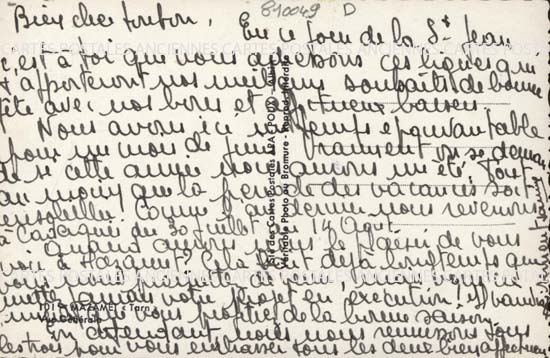 810049 D
Bien cher tonton, En ce jour de la St Jean
c'est à toi que nous adressons ces lignes qui
t'apporteront nos meilleurs souhaits de bonne
fête avec nos bons et affectueux baisers.
Nous avons ici un temps épouvantable
pour un mois de juin vraiment on se deman
de si cette année nous aurons un été. Tout
au moins que la période des vacances soit
ensoleillée. Comme l'an dernier nous
à du 30 juillet au 14 Août.
Quand aurons nous le plaisir de vous
voir à Mazamet? Cela fait déjà longtemps que
vous nous de venir, mais
votre projet en exécution! Il faudra
profiter de la bonne saison.
En attendant nous nous réunissons tous
les trois pour vous embrasser tous les deux bien affectueu
MAZAMET Tarn
Véritable Photo au Bromure
CARTES POSTALES ANCIENNES